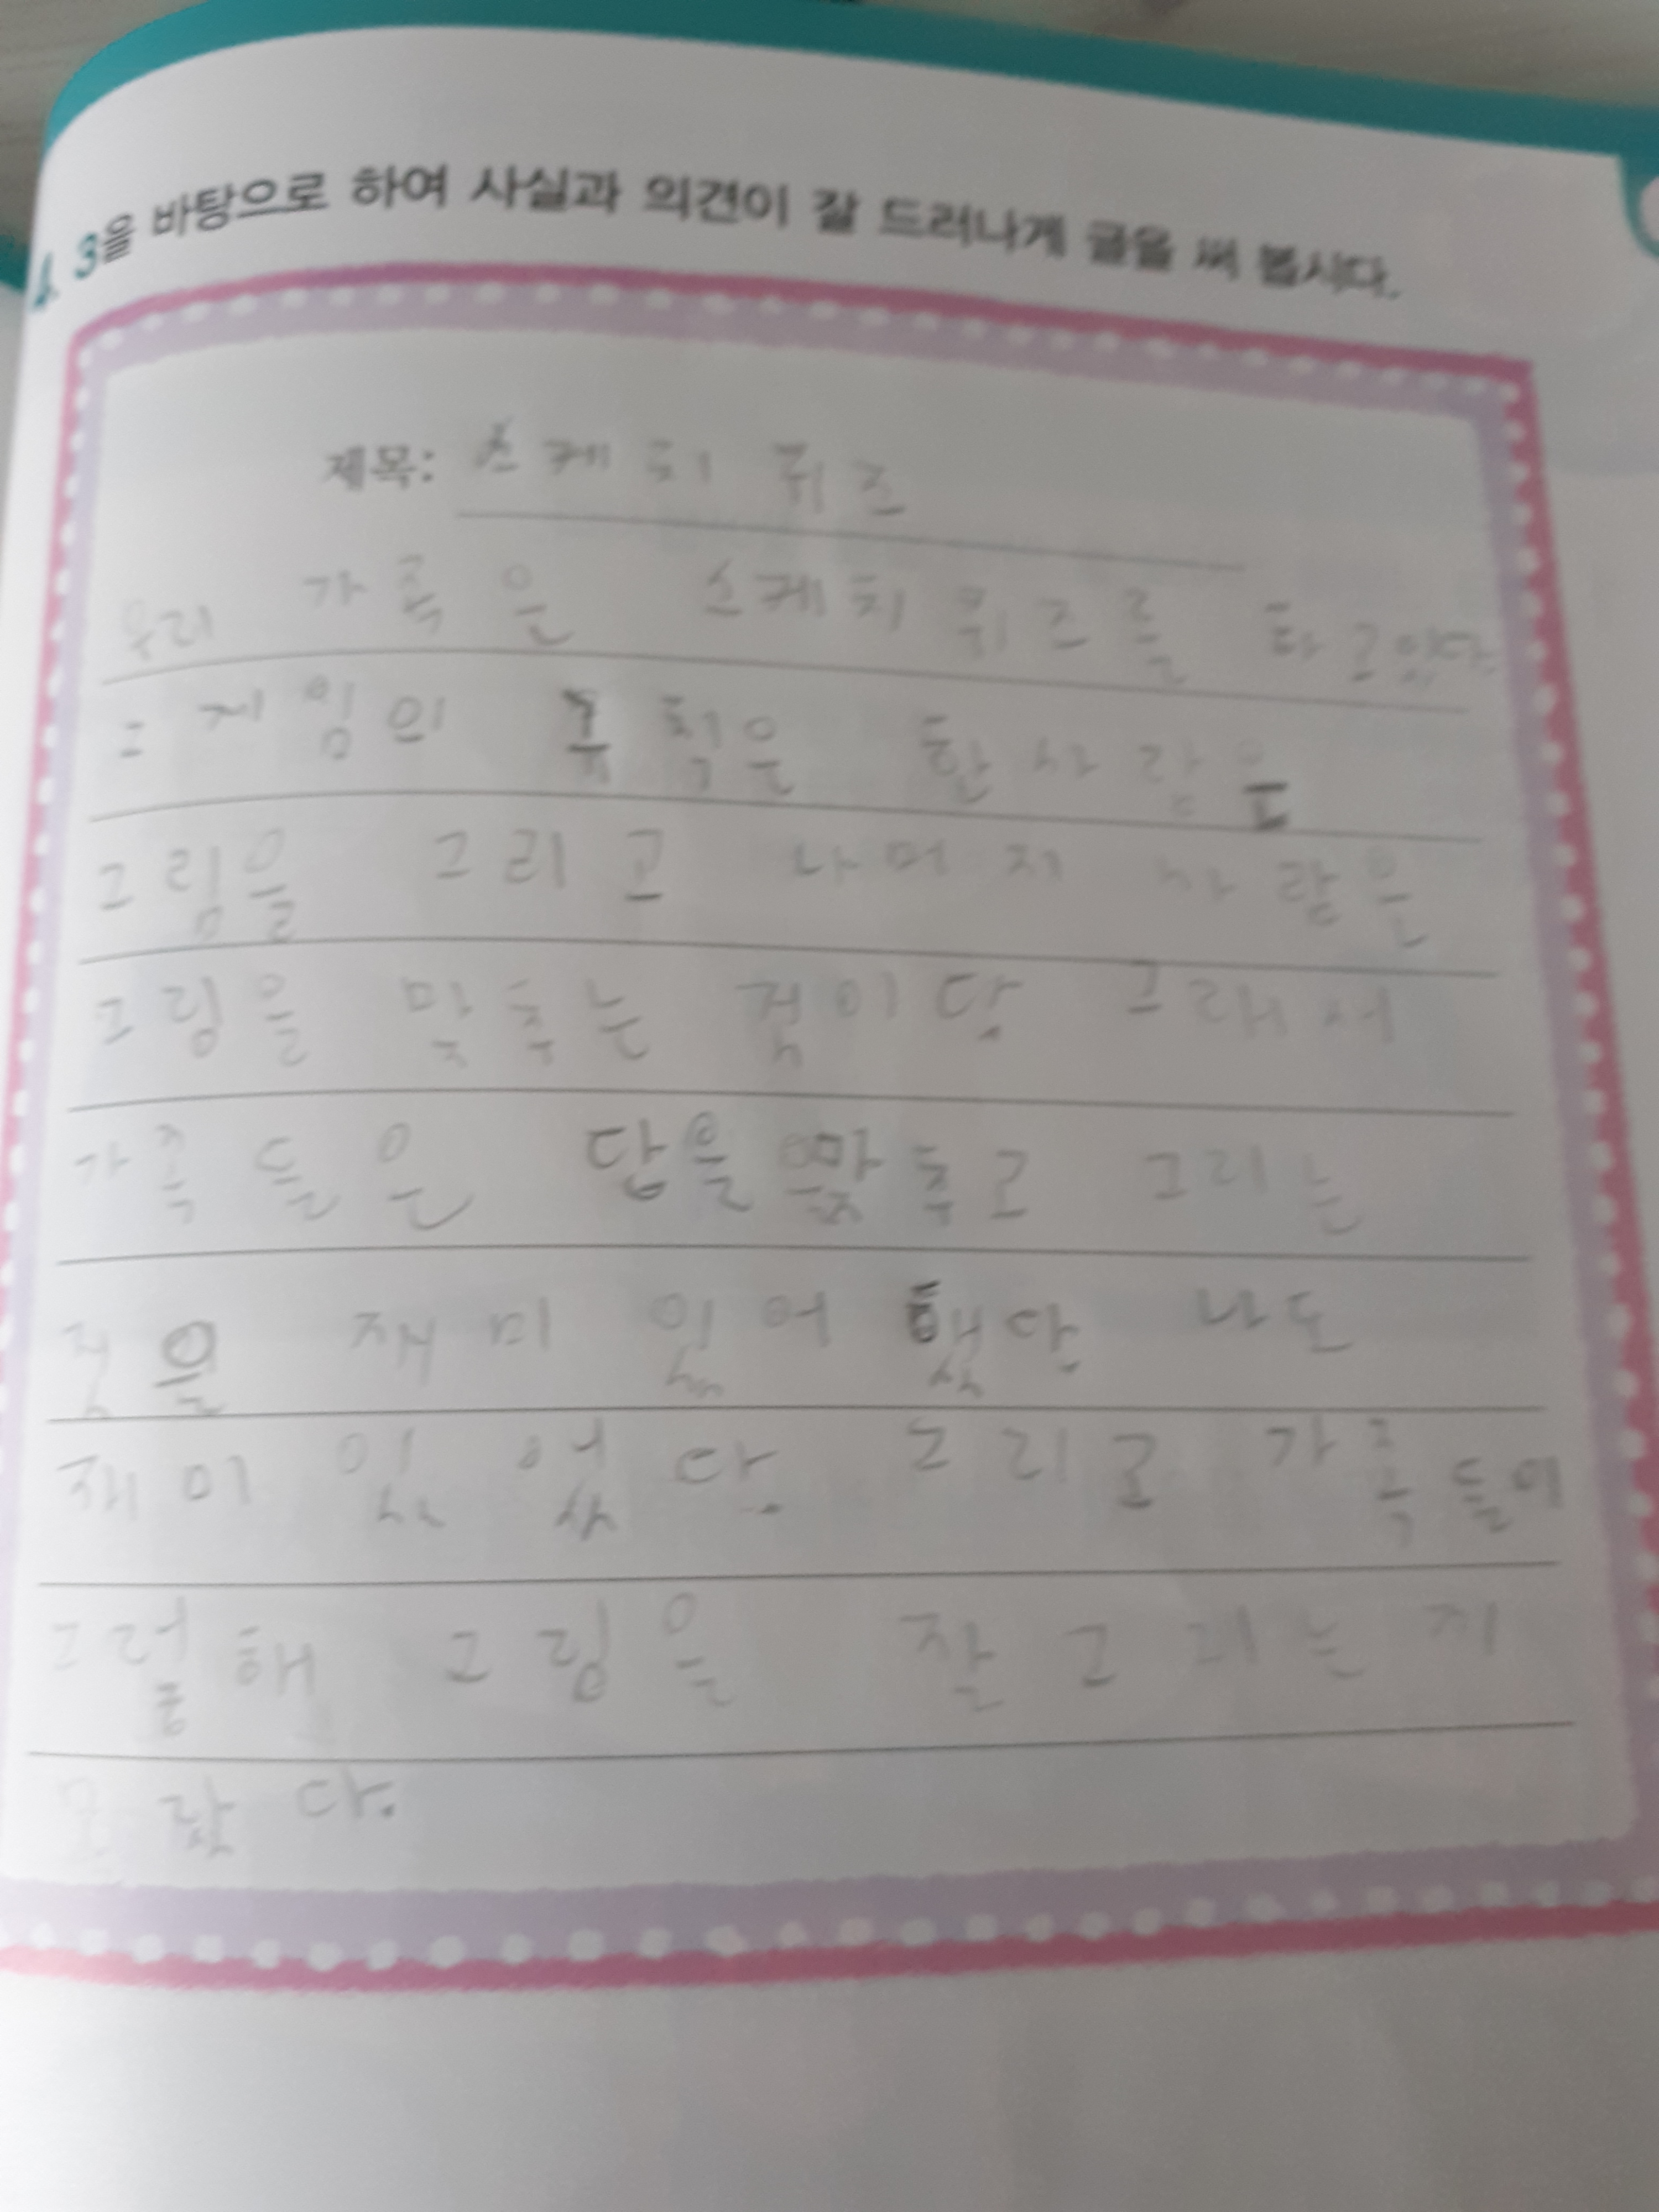 4. 3을 바탕으로 하여 사실과 의견이 잘 드러나게 글을 써 봅시다.
제목: 스케치 퀴즈
우리 가족은 스케치 퀴즈를 하고있다
그 게임의 규칙은 한사람은
그림을 그리고 나머지 사람은
그림을 맞추는 것이다. 그래서
가족들은 답을 맞추고 그리는
것을 재미있어했다. 나도
재미있었다. 그리고 가족들이
그림을 잘 그리는지
몰랐다.